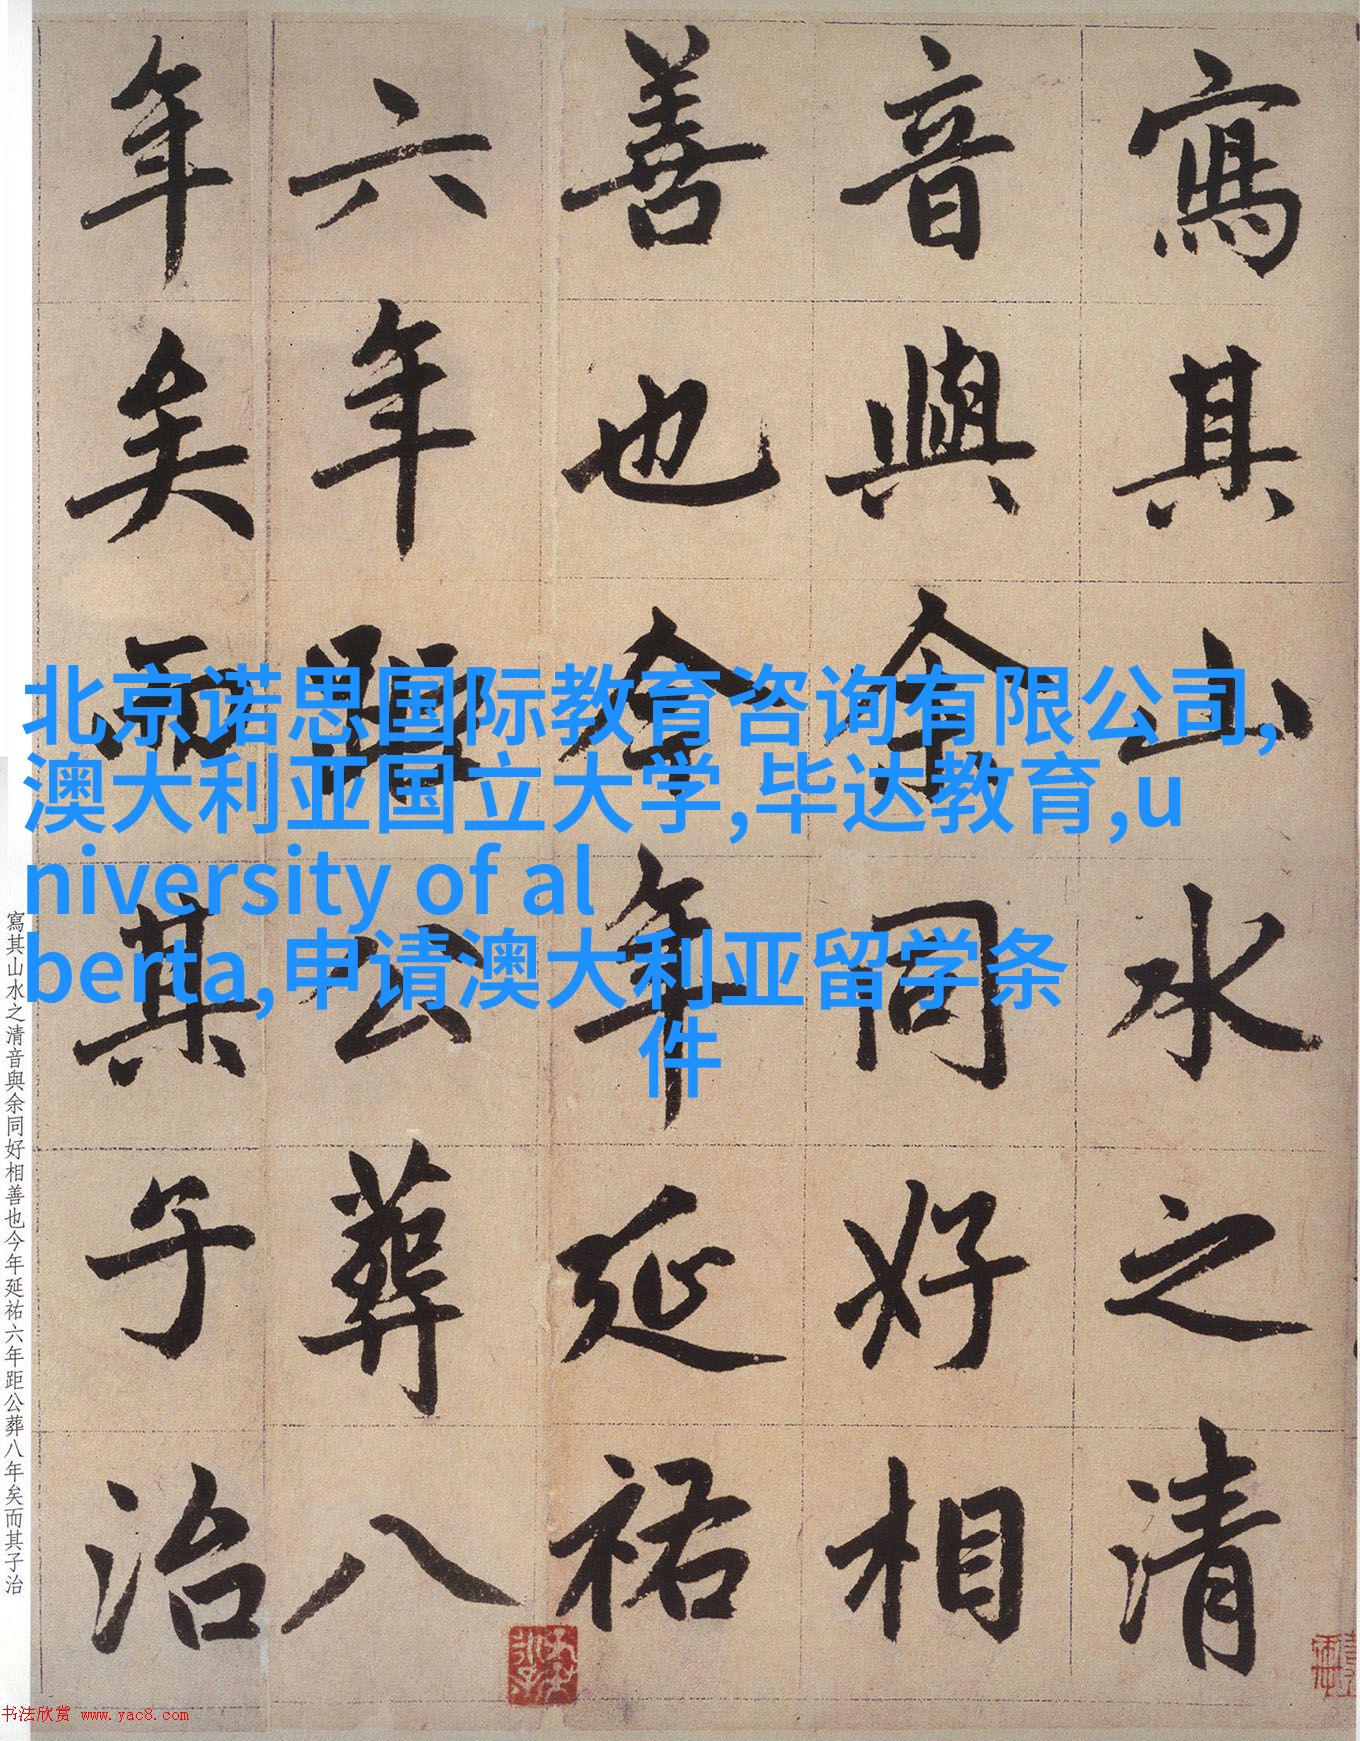 寫其山水之清
音與余同好相
善也今年延祐
六年距公葬八
年矣而其子治
北京诺思国际教育咨询有限公司,
澳大利亚国立大学,毕达教育,u
niversity of al
berta,申请澳大利亚留学条
件
寫其山水之清音與余同好相善也今年延祐六年距公葬八年矣而其子治
书法欣赏 www.yac8.com